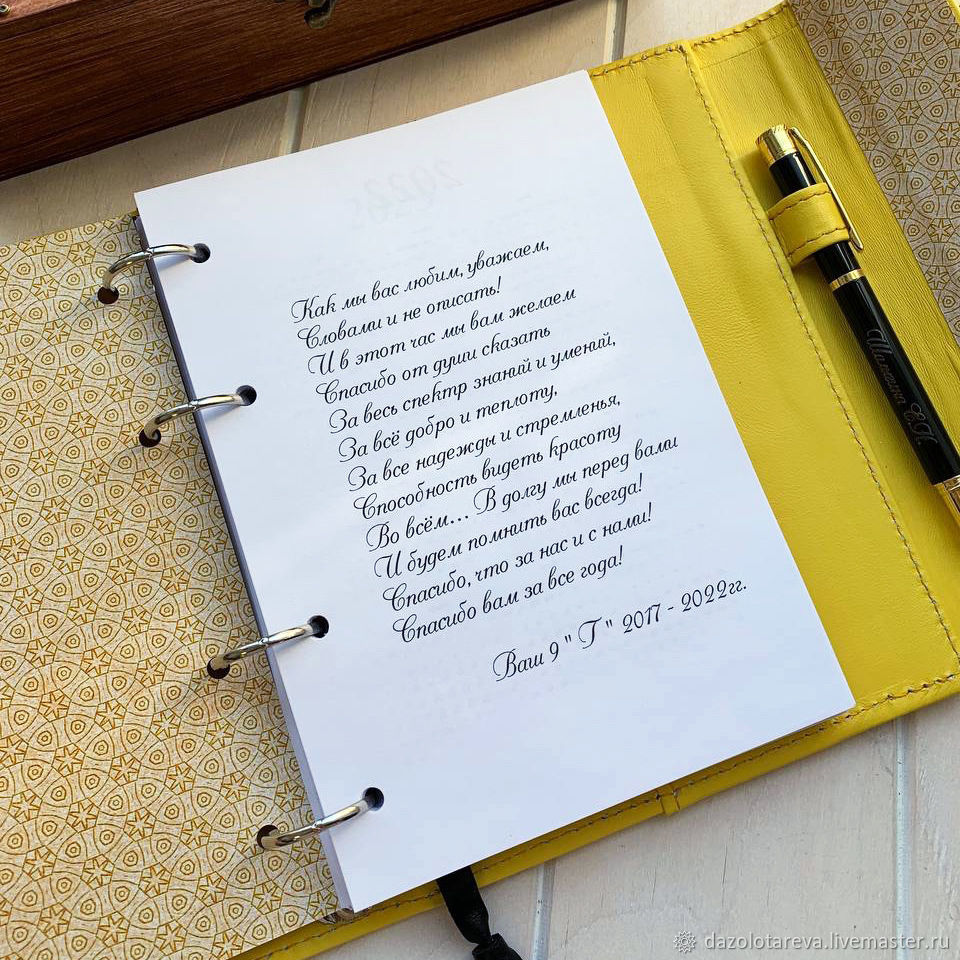 Как мы вас любим, уважаем,
Словами и не описать!
И в этот час мы вам желаем
Спасибо от души сказать
За весь спектр знаний и умений,
За всё добро и теплоту,
За все надежды и стремленья,
Способность видеть красоту
Во всём... В долгу мы перед вами
И будем помнить вас всегда!
Спасибо, что за нас и с нами!
Спасибо вам за все года!
Ваш 9 " Г " 2017 - 2022гг.
dazolotareva.livemaster.ru